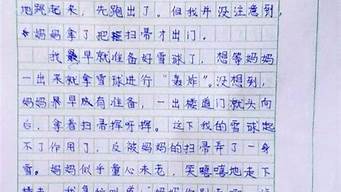 地跳起来，先跑出了。但我并没注意到，
妈妈拿了把扫帚才出门。
我最早就准备好雪球了，想等妈妈
一出来就拿雪球进行“轰炸”。没想到，
妈妈是早成有准备，一出楼道门就头向
右，拿着扫帚挥呀挥。这下我的雪球起
不了作用了，反被妈妈的扫帚弄了一身
雪。妈妈似乎童心未老，笑嘻嘻地走下